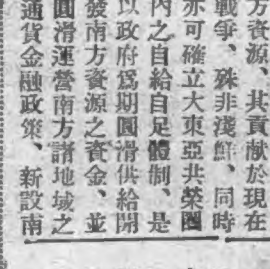 方資源、其貢献於現在
戰爭、殊非淺鮮、同時
亦可確立大東亞共榮圈
內之自給自足體制、是
以政府爲期圓滑供給開
發南方資源之資金、並
圓滑運營南方諸地域之
通貨金融政策、新設南